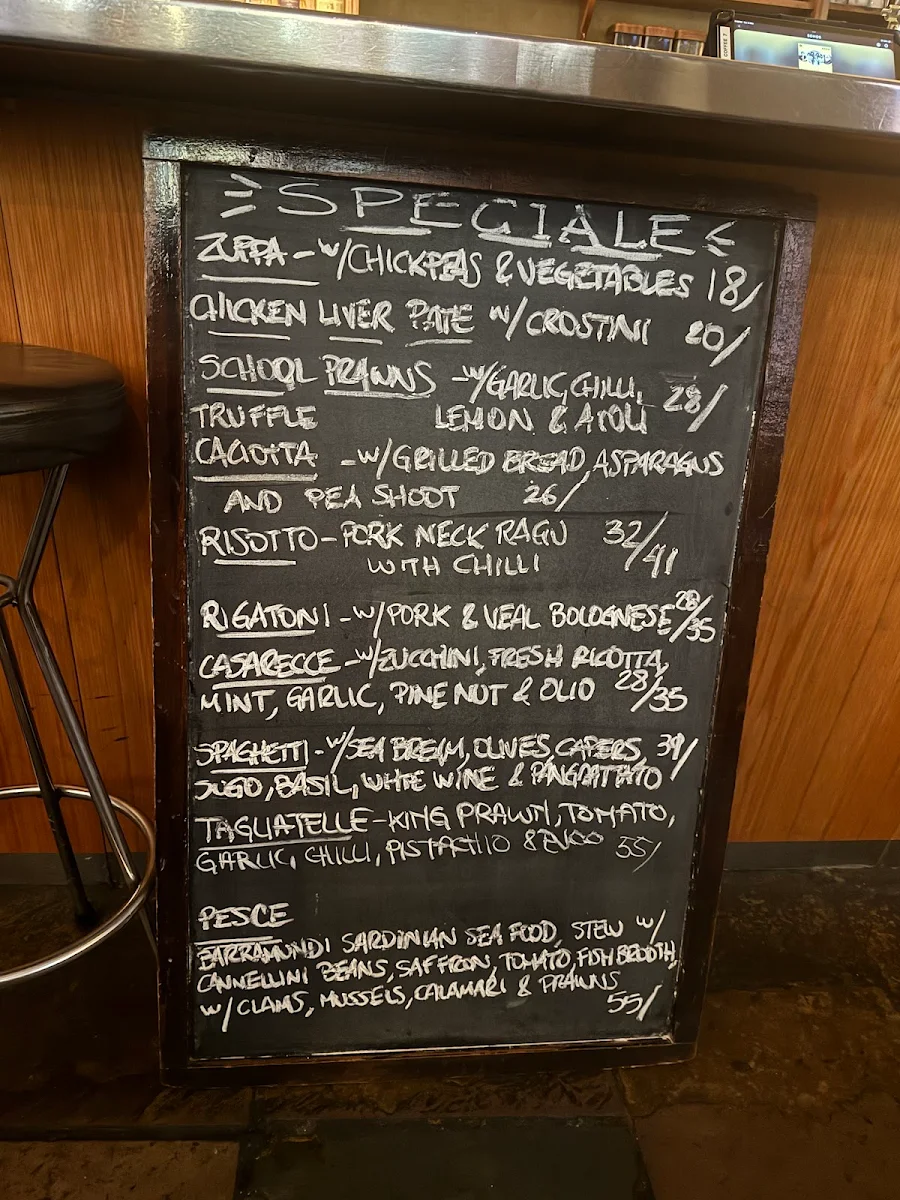 SPECIALE
ZUPPA - W/CHICKPEAS & VEGETABLES 18/
CHICKEN LIVER PATE W/CROSTINI 20/
SCHOOL PRAWNS - W/GARLIC, CHILLI, 28/
LEMON & AIOLI
TRUFFLE
CACIOTTA - W/GRILLED BREAD, ASPARAGUS
AND PEA SHOOT 26/
RISOTTO - PORK NECK RAGU 32/41
WITH CHILLI
RIGATONI - W/PORK & VEAL BOLOGNESE 28/35
CASARECCE - W/ZUCCHINI, FRESH RICOTTA,
MINT, GARLIC, PINE NUT & OLIO 28/35
SPAGHETTI - W/SEA BREAM, OLIVES, CAPERS, 39/
SUGO, BASIL, WHITE WINE & PANGRATTATO
TAGLIATELLE - KING PRAWN, TOMATO,
GARLIC, CHILLI, PISTACHIO & 55/
PESCE
BARRAMUNDI SARDINIAN SEAFOOD, STEW W/
CANNELLINI BEANS, SAFFRON, TOMATO, FISH BROOTH,
W/CLAMS, MUSSELS, CALAMARI & PRAWNS
55/